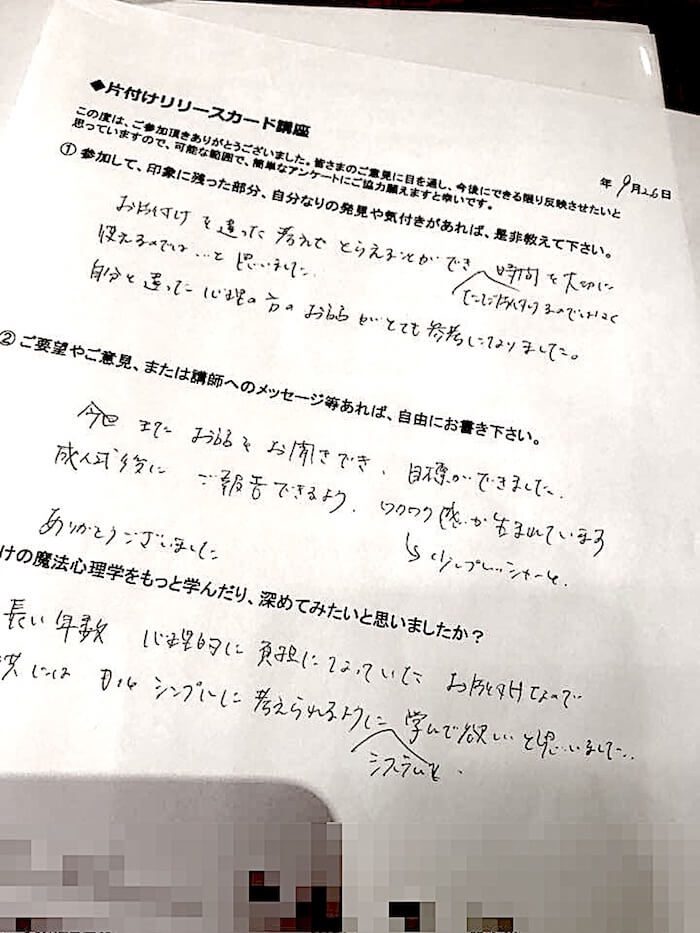 ◆片付けリリースカード講座
年 9月26日
この度は、ご参加頂きありがとうございました。皆さまのご意見に目を通し、今後にできる限り反映させたいと
思っていますので、可能な範囲で、簡単なアンケートにご協力願えますと幸いです。
① 参加して、印象に残った部分、自分なりの発見や気付きがあれば、是非教えて下さい。
お片付けを違った考えでとらえることができ 時間を大切に
ただ片付けるのではなく
使えるのでは…と思いました。
自分と違った心理の方のお話がとても参考になりました。
② ご要望やご意見、または講師へのメッセージ等あれば、自由にお書き下さい。
今回またお話をお聞きでき、目標ができました。
成人式後にご報告できるよう、ワクワク感が生まれています
↳少しプレッシャーも。
ありがとうございました
けの魔法心理学をもっと学んだり、深めてみたいと思いましたか？
長い年数 心理的に負担になっていたお片付けなので
には シンプルに考えられるように学んで欲しいと思いました。